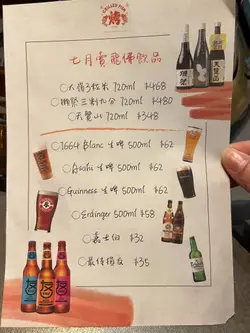 GRILLED PUB
烤
七月賣飛佛飲品
○大嶺3粒米 720ml $468
○獺祭三割九分 720ml $480
○天鷺山 720ml $348
○1664 Blanc 生啤 500ml $62
○Asahi 生啤 500ml $62
○Guinness 生啤 500ml $62
○Erdinger 500ml $58
○嘉士伯 $32
○最佳損友 $35
友 友 友